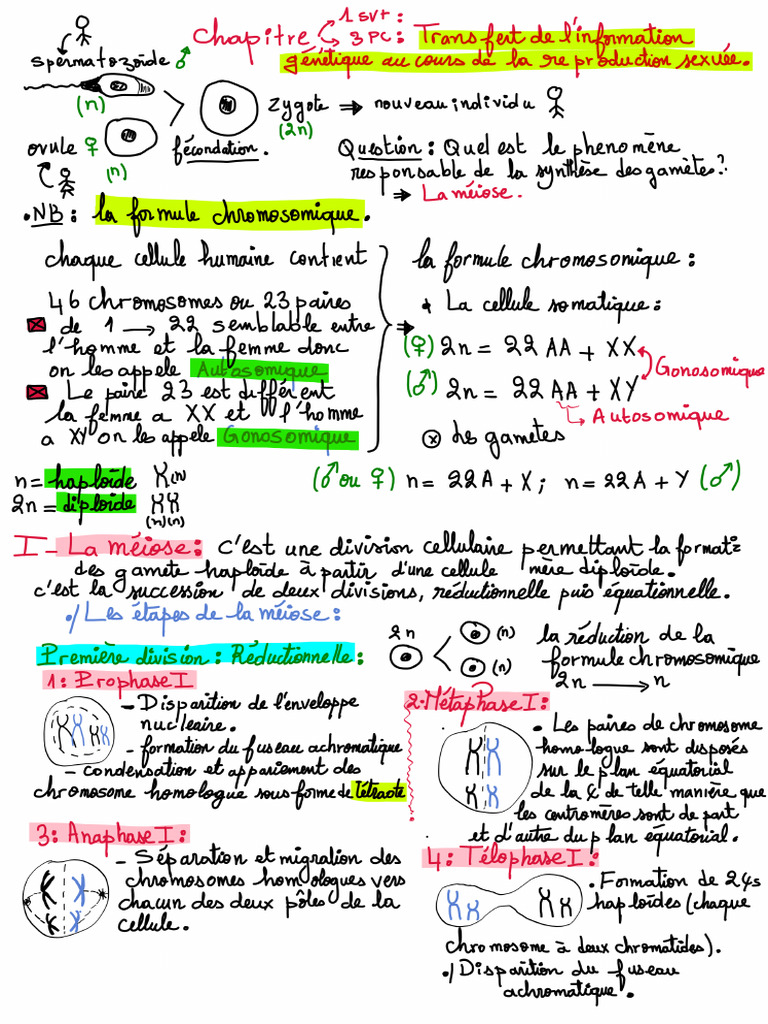 Chapitre 1 SVT :
3 PC : Transfert de l'information
génétique au cours de la reproduction sexuée.
spermatozoïde ♂
(n)
zygote ⇒ nouveau individu
(2n)
ovule ♀
(n)
fécondation.
Question : Quel est le phenomène
responsable de la synthèse des gamètes ?
⇒ La méiose.
• NB : la formule chromosomique.
chaque cellule humaine contient
46 chromosomes ou 23 paires
de 1 → 22 semblable entre
l'homme et la femme donc
on les appele Autosomique
Le paire 23 est différent
la femme a XX et l'homme
a XY on les appele Gonosomique
⇒
la formule chromosomique :
La cellule somatique :
(♀) 2n = 22 AA + XX
Gonosomique
(♂) 2n = 22 AA + XY
↳ Autosomique
des gametes
(♂ ou ♀) n = 22A + X ; n = 22A + Y (♂)
n = haploïde (n)
2n = diploïde
(n)(n)
I - La méiose : c'est une division cellulaire permettant la formati=
des gamète haploïde à partir d'une cellule mère diploïde.
c'est la succession de deux divisions, réductionnelle puis équationnelle.
•/ Les étapes de la méiose :
2n (n)
(n)
la réduction de la
formule chromosomique
2n → n
Première division : Réductionnelle :
1 : Prophase I
- Disparition de l'enveloppe
nucleaire.
- formation du fuseau achromatique
- condensation et appariement des
chromosome homologue sous forme de tétracte
2 • Métaphase I :
• Les paires de chromosome
homologue sont disposés
sur le plan équatorial
de la C de telle manière que
les centromères sont de part
et d'autre du plan équatorial.
3 : Anaphase I :
- Séparation et migration des
chromosomes homologues vers
chacun des deux pôles de la
cellule.
4 : Télophase I :
• Formation de 2 
haploïdes (chaque
chromosome à deux chromatides).
•/ Disparition du fuseau
achromatique.